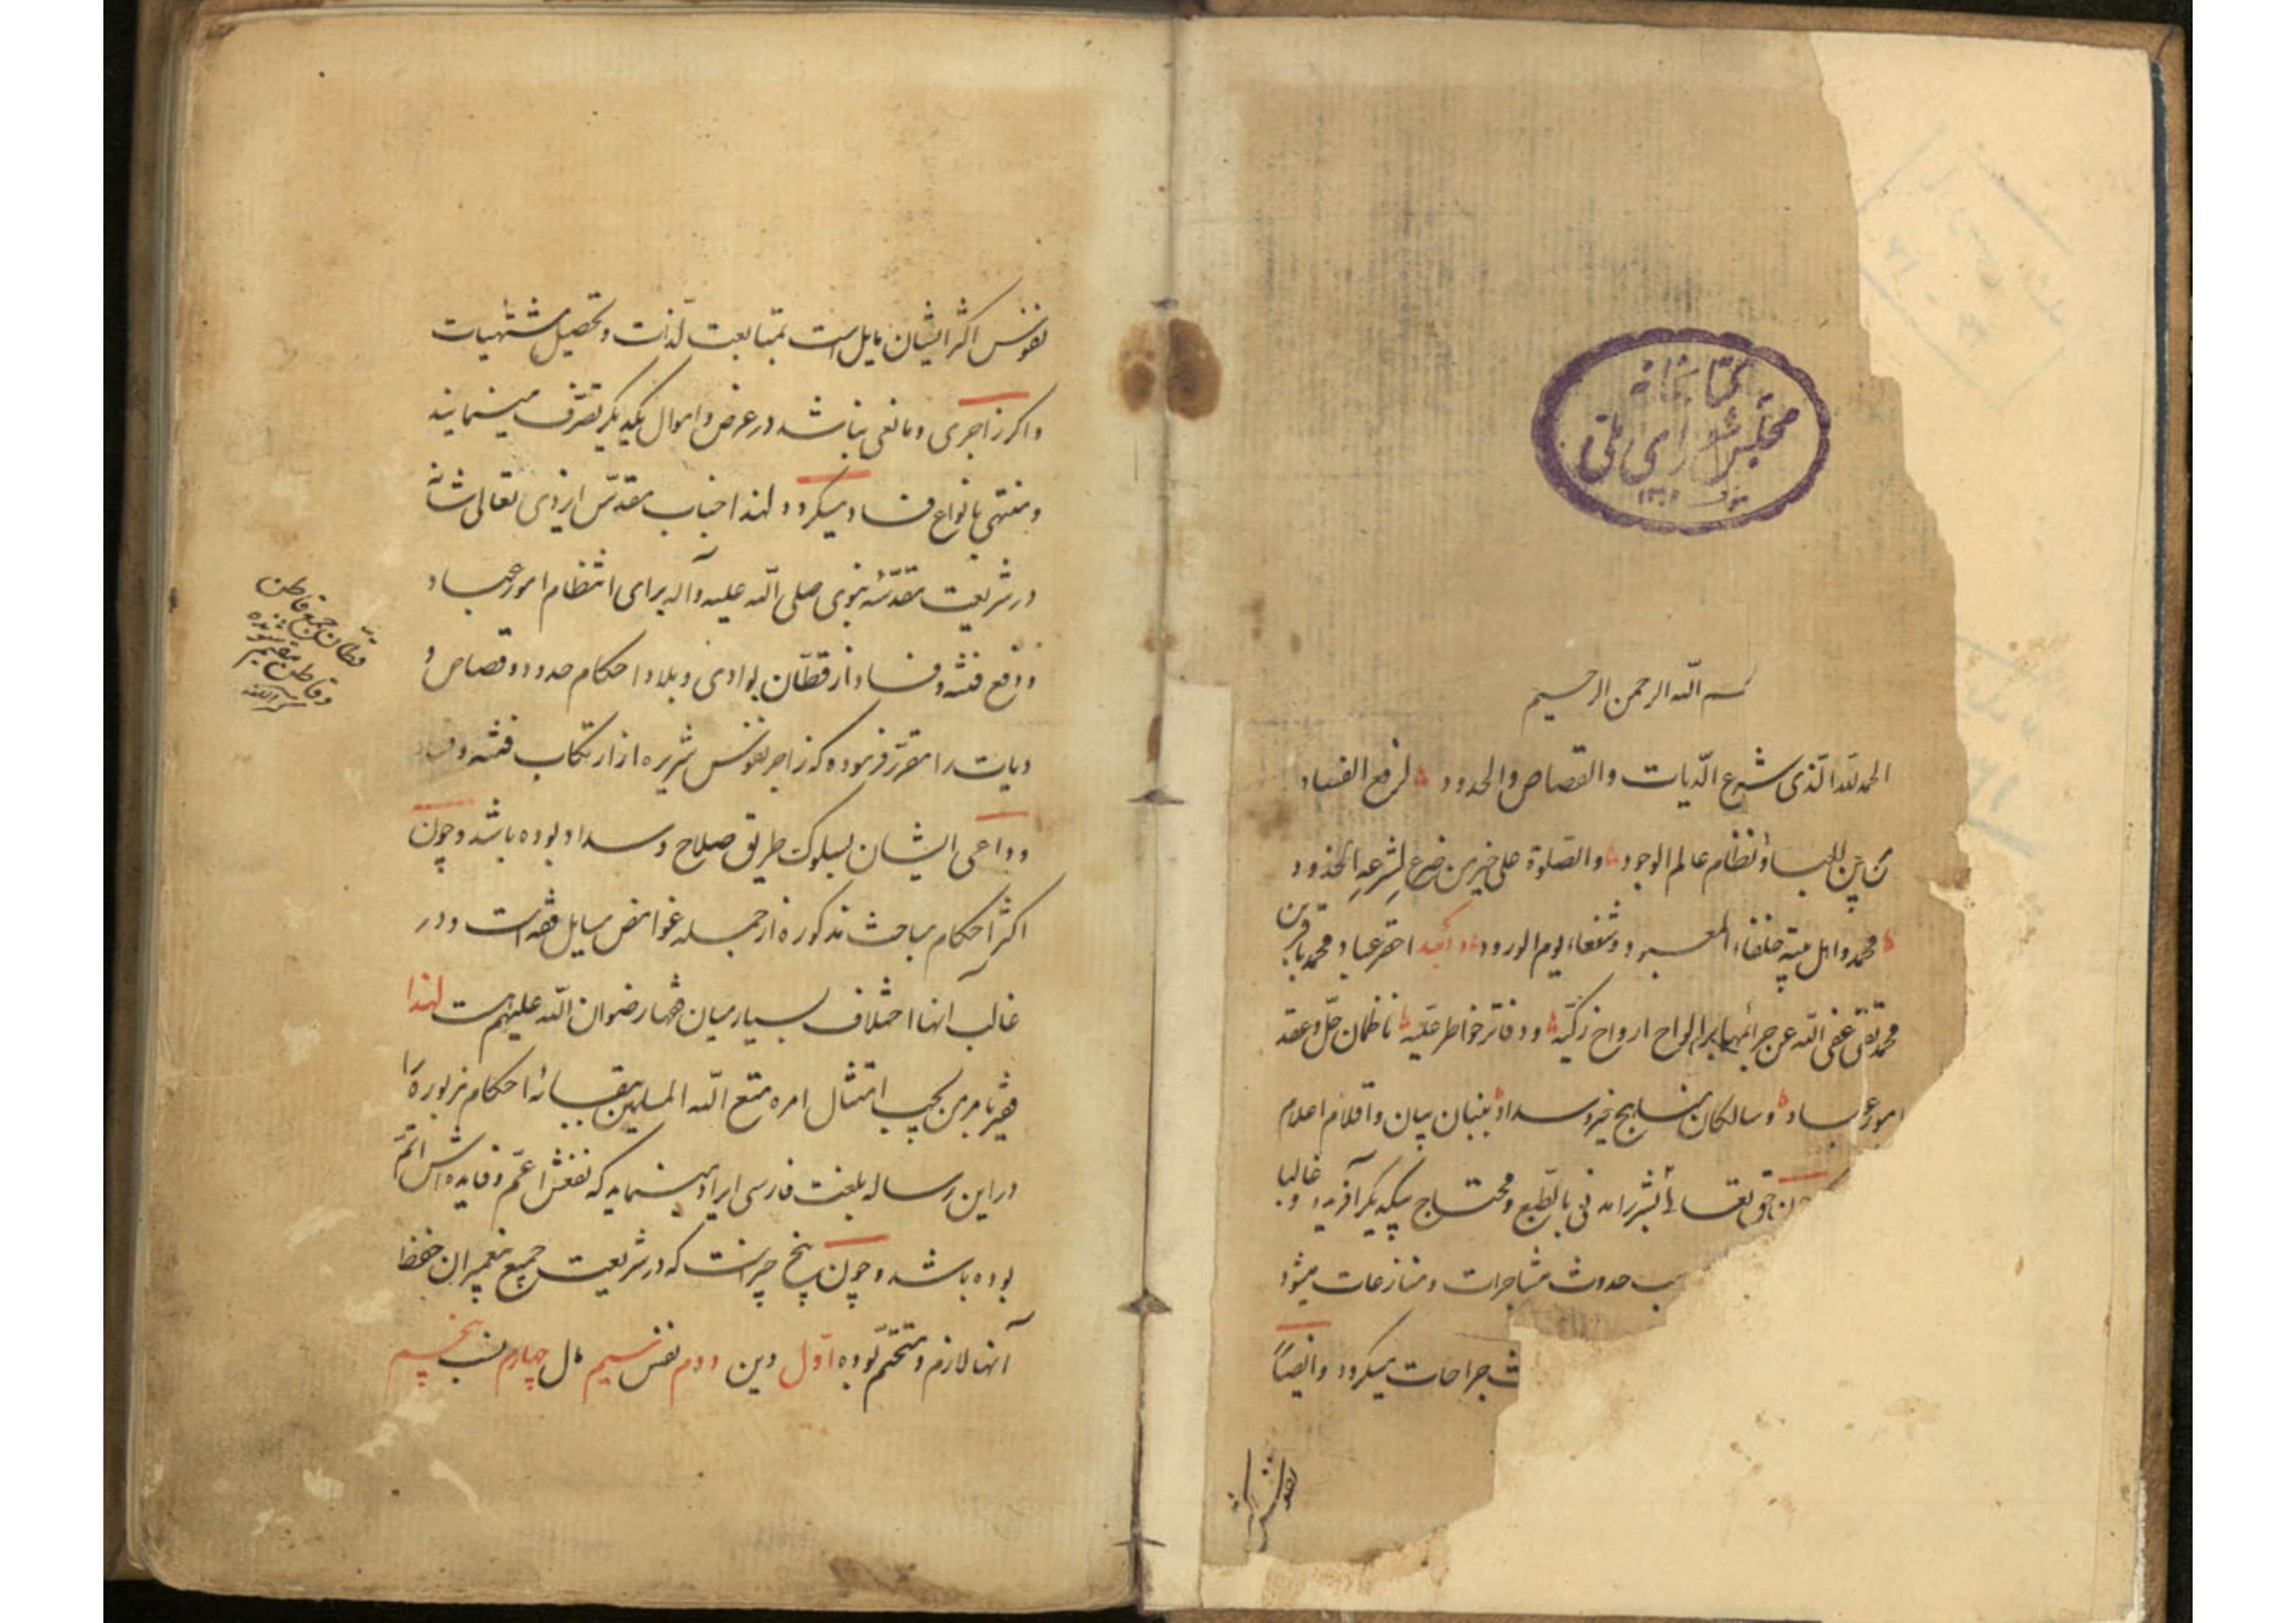 کتابخانه
مجلس شورای ملی
بسم الله الرحمن الرحیم
الحمد لله الذی شرع الدّیات والقصاص والحدود لرفع الفساد
بین العباد و نظام عالم الوجود والصلوة علی خیر من ضرع لشرعه الخدود
محمد و اهل بیته خلفاء المعبود و شفعاء یوم الورود و بعد احقر عباد محمد باقر بن
محمد تقی عفی الله عن جرائمهما بر الواح ارواح زکیّه و دفاتر خواطر علیّه ناظمان حلّ و عقد
امور عباد و سالکان مناهج خیر و سداد به بنان بیان و اقلام اعلام
چون حق تعالی بشر را مدنی بالطبع و محتاج بیکدیگر آفریده و غالبا
حدوث مشاجرات و منازعات میشود
جراحات میگردد و ایضاً
نفوس اکثر
نفوس اکثر ایشان مایل است بمتابعت لذات و تحصیل مشتهیات
و اکر زاجری و مانعی نباشد در عرض و اموال یکدیکر تصرّف مینمایند
و منتهی بانواع فساد میکردد لهذا جناب مقدّس ایزدی تعالی شانه
در شریعت مقدّسه نبوی صلی الله علیه و آله برای انتظام امور عباد
و دفع فتنه و فساد از قطّان بوادی و بلاد احکام حدود و قصاص و
دیات را مقرّر فرموده که زاجر نفوس شریره از ارتکاب فتنه و فساد
و داعی ایشان بسلوک طریق صلاح و سداد بوده باشد و چون
اکثر احکام مباحث مذکوره از جمله غوامض مسایل فقه است و در
غالب آنها اختلاف بسیار میان فقها رضوان الله علیهم هست لهذا
فقیر بامر من یجب امتثال امره متع الله المسلمین ببقائه احکام مزبوره را
در این رساله بلغت فارسی ایراد مینماید که نفعش اعمّ و فایده اش اتمّ
بوده باشد و چون پنج چیز است که در شریعت جمیع پیغمبران حفظ
آنها لازم و متحتّم بوده اوّل دین دوم نفس سیم مال چهارم نسب پنجم
قطّان جمع قاطن
و قاطن مقیم